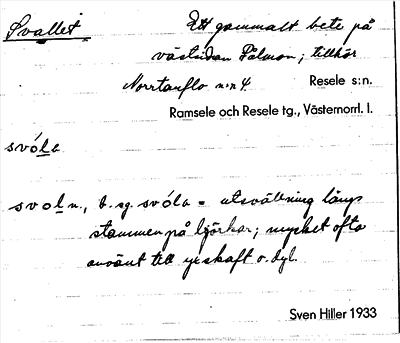 Svallet
Ett gammalt bete på
västsidan Tälmon; tillhör
Norrtanflo n:o 4.
Resele s:n.
Ramsele och Resele tg., Västernorrl. l.
svóla
svoln., b. sg. svóla = utsvällning längs
stammen på björkar; mycket ofta
använt till yxskaft o. dyl.
Sven Hiller 1933